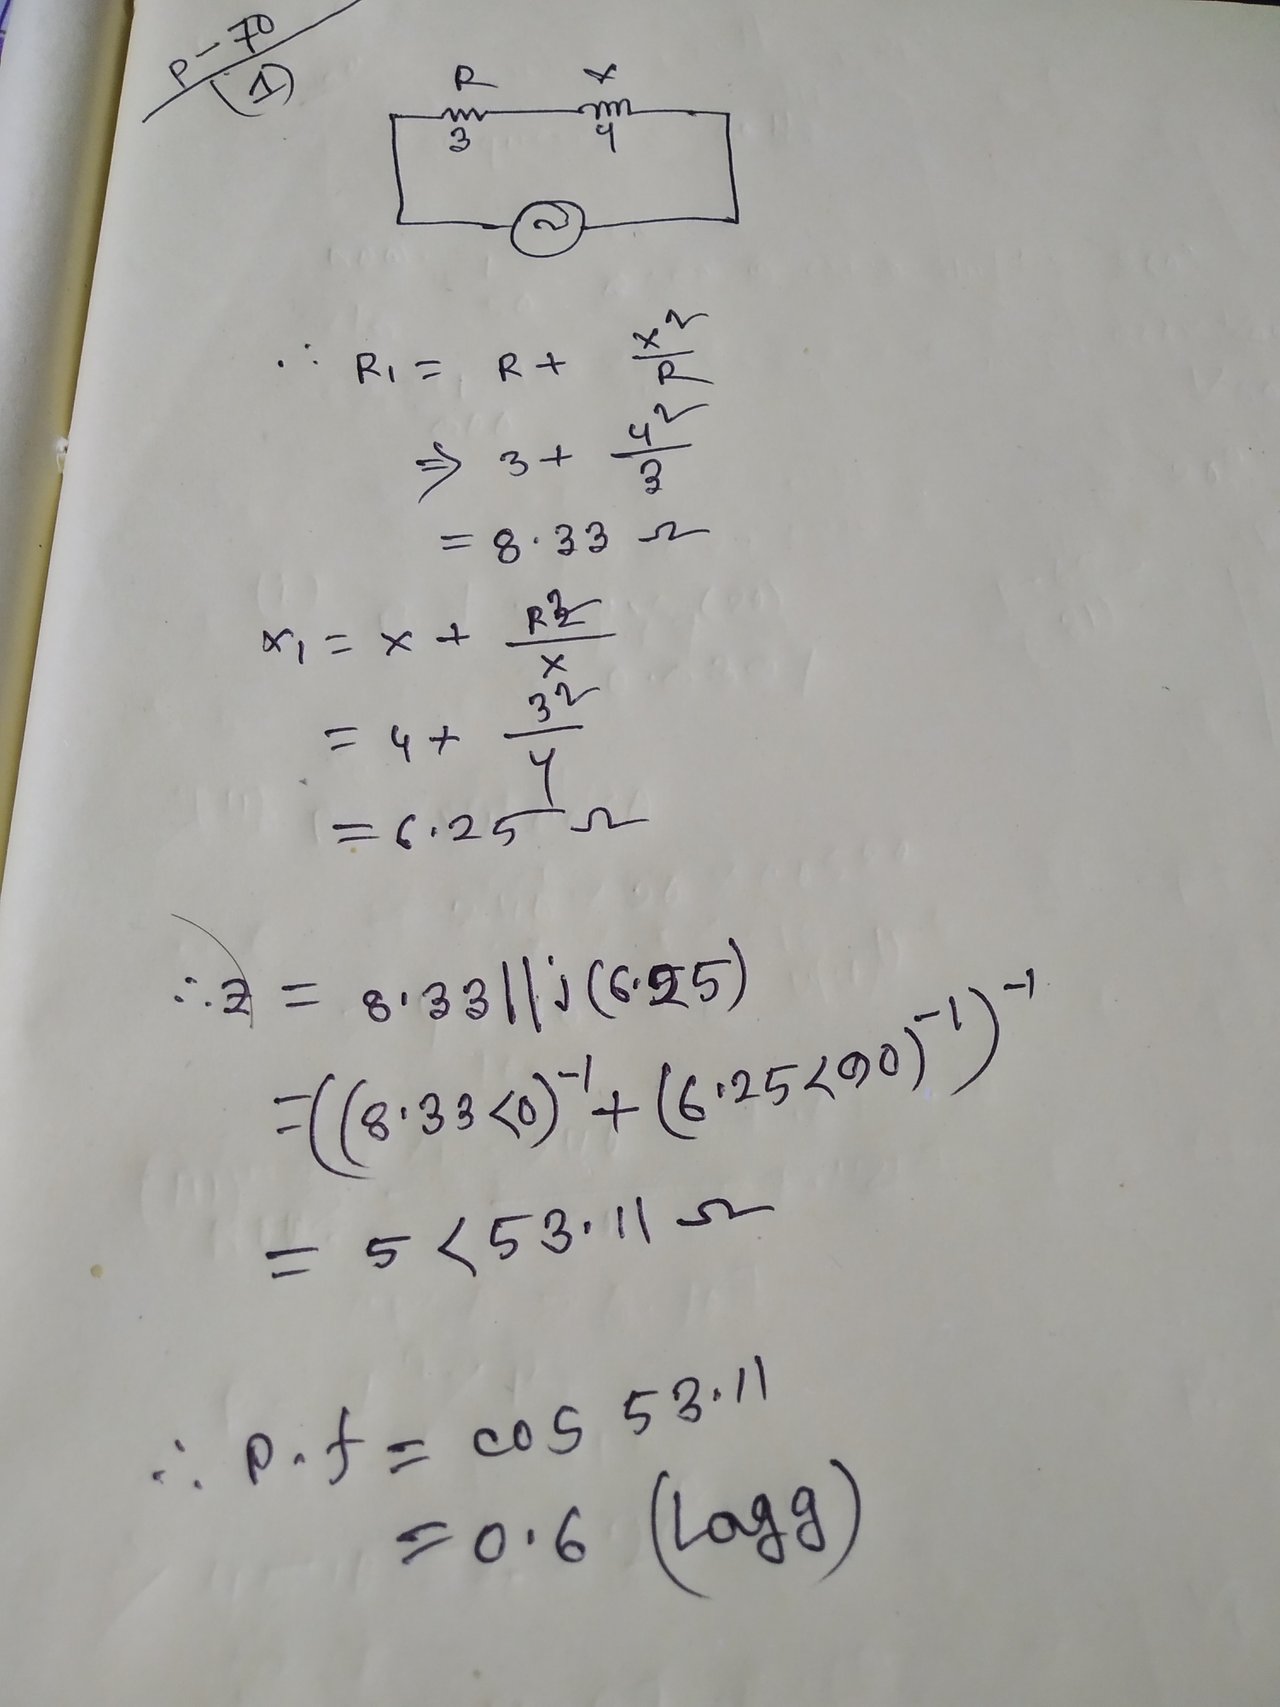 P-70
(1)
R X
3 4
~
∴ R₁ = R + x²/R
⇒ 3 + 4²/3
= 8.33 Ω
x₁ = x + R²/x
= 4 + 3²/4
= 6.25 Ω
∴ Z = 8.33 || j(6.25)
= ((8.33<0)⁻¹ + (6.25<90)⁻¹)⁻¹
= 5 < 53.11 Ω
∴ P.f = cos 53.11
= 0.6 (Lagg)